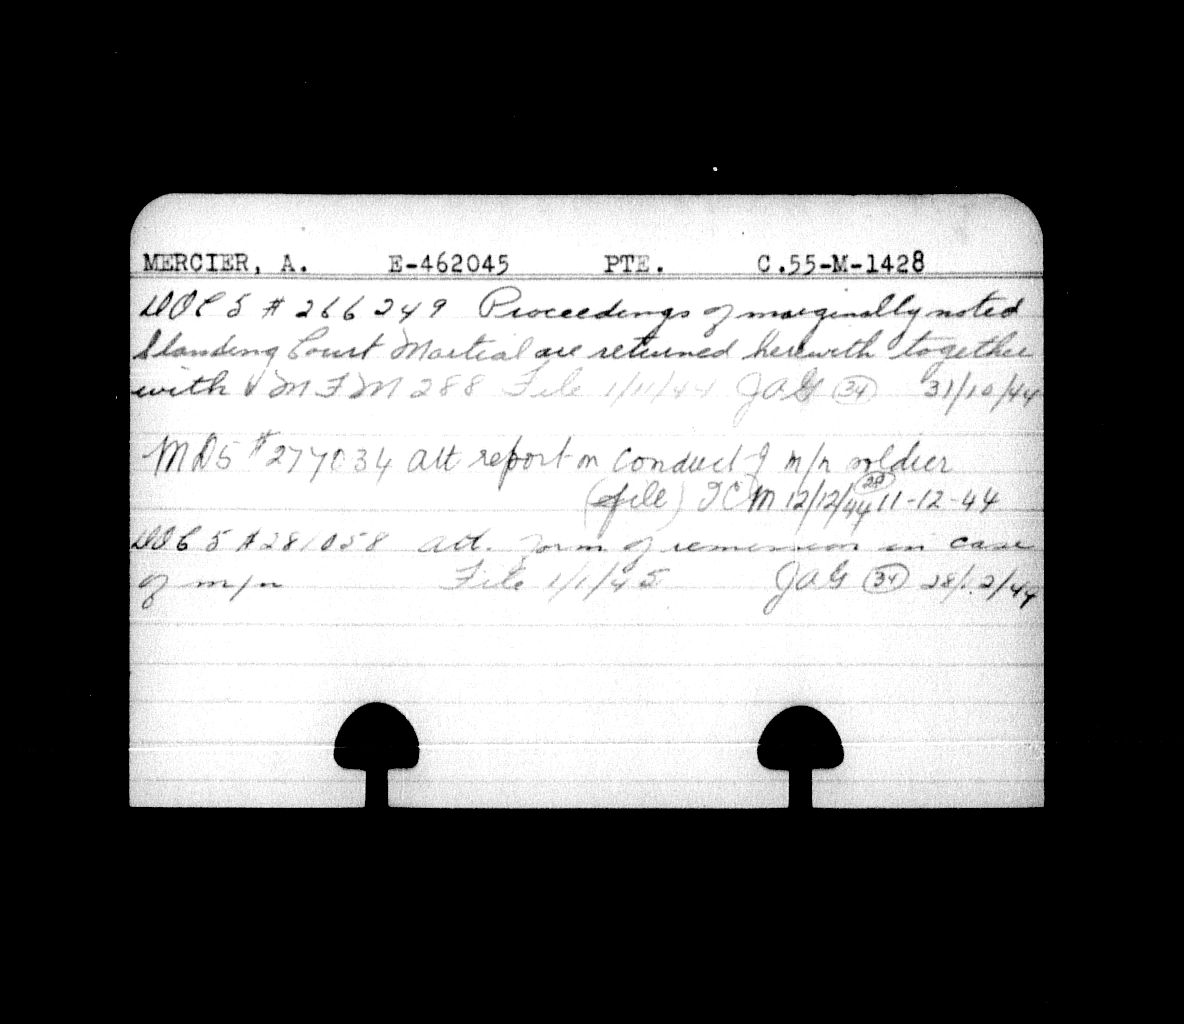 MERCIER, A. E-462045 PTE. C.55-M-1428
DOC 5 # 266249 Proceedings of marginally noted
Standing Court Martial are returned herewith together
with MFM 288 File 1/11/44 JAG 34 31/10/44
MD5 # 277034 Att report on conduct of m/n soldier
(file) M 12/12/44 29 11-12-44
DOC 5 # 281058 att. form of remission in case
of m/n File 1/1/45 JAG 34 28/12/44